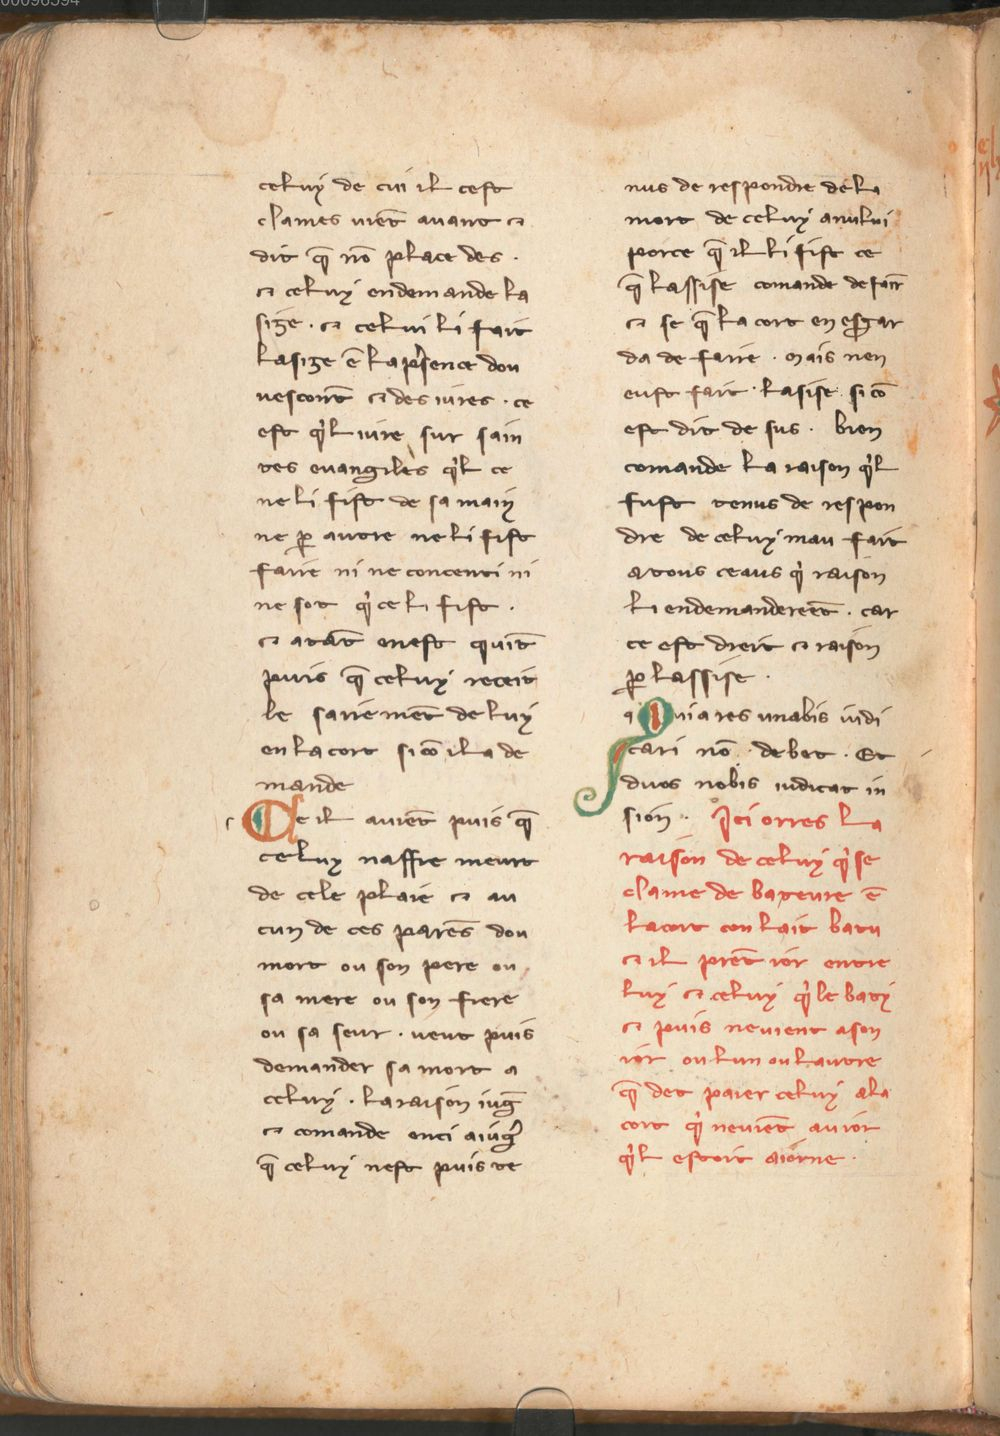 celuy de cui il cest
clames uiēt auant ⁊
dit q̄ nō place des ·
⁊ celuy endemande la
size · ⁊ celui li fait
lasize ē la p̄sence dou
uescont ⁊ des iures · ce
est q̓l iure sur sain
tes euangiles q̓l ce
ne li fist de sa main
ne ꝑ autre ne li fist
faire ni ne concenti ni
ne sot q̓ ce li fist ·
⁊ atāt enest quit̄
puis q̄ celuy receit
le sairemēt de luy
en la cort si cō il a de
mande
Ce il auiēt puis q̄
celuy naffre meurt
de cele plaie ⁊ au
cun de ces parēs dou
mort ou son pere ou
sa mere ou son frere
ou sa seur · ueut puis
demander sa mort a
celuy · la raison iuḡ
⁊ comande enci aiug̓
q̄ celuy nest puis te
nus de respondre de la
mort de celuy anului
porce q̄ il li fist ce
q̄ lassise comande de fair̄
⁊ se q̄ la cort en esgar
da de faire · mais nen
eust fait · lasise si cō
est dit de sus · bien
comande la raison q̓l
fust tenus de respon
dre de celuy mau fait
a tous ceaus q̓ raison
li endemandereēt · car
ce est dreit ⁊ raison
ꝑ lassise ·
q Quia res unabis iudi
cari nō debet · Et
duos nobis iudicat in
sion · Ici orres la
raison de celuy q̓ se
clame de bateure ē
la cort con lait batu
⁊ il prēt ior entre
luy ⁊ celuy q̓ le baty
⁊ puis neuient a son
ior ou lun ou lautre
q̄ det paier celuy a la
cort q̓ neuiēt au ior
q̓l estoit aiorne ·